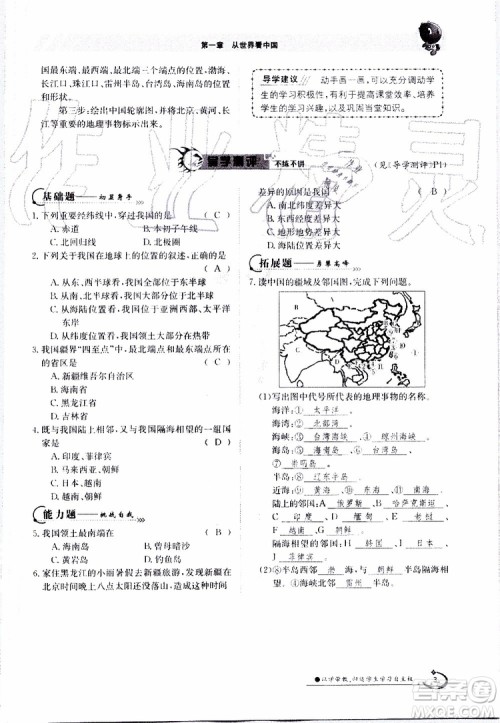 第一章 从世界看中国
国最东端、最西端三个端点的位置,渤海、
长江口、珠江口、雷州半岛、台湾岛、海南岛
等位置。
第三步:绘出中国轮廓图,并将北京、黄河、长
江等重要的地理事物标示出来。
导学建议 动手画一画,可以充分调动学
生的学习积极性,有利于提高课堂效率、培养
学生的学习兴趣,以及巩固当堂知识。
导学测评 不练不讲 (见《导学测评》P1)
基础题 初显身手
1. 下列重要经纬线中,穿过我国的是 ( C )
A. 赤道 B. 本初子午线
C. 北回归线 D. 北极圈
2. 下列关于我国在地球上的位置的叙述,正确的是
( A )
A. 从东、西半球看,我国在东半球
B. 从南、北半球看,我国在南半球
C. 从海陆位置看,我国位于亚洲西部、太平洋
东岸
D. 从纬度位置看,我国领土大部分在热带
3. 我国疆界“四至点”中,最北端点和最东端点所在
的省区是 ( C )
A. 新疆维吾尔自治区
B. 海南省
C. 黑龙江省
D. 吉林省
4. 既与我国陆上相邻,又与我国隔海相望的一组国
家是 ( D )
A. 印度、菲律宾
B. 马来西亚、朝鲜
C. 日本、朝鲜
D. 越南、朝鲜
能力题 挑战自我
5. 我国领土最南端在 ( B )
A. 海南岛 B. 曾母暗沙
C. 黄岩岛 D. 钓鱼岛
6. 家住黑龙江的小丽暑假去新疆旅行,她发现当时
北京时间晚上八点太阳还没有落山,造成这种
差异的原因是我国 ( B )
A. 南北纬度差异大
B. 东西经度差异大
C. 地形差异大
D. 海陆位置差异大
拓展题 勇攀高峰
7. 读中国的疆域及邻国图,完成下列问题。
(1)写出图中代号所代表的地理事物的名称。
海洋:① 太平洋 。
海峡:② 台湾海峡 ,③ 琼州海峡 。
海岛:④ 海南岛 ,⑥ 台湾岛 ,
⑦ 崇明岛 。
半岛:⑧ 辽东半岛 。
近海:⑨ 黄海 ,⑩ 东海 。
陆上的邻国:A 俄罗斯 ,B 哈萨克斯坦 ,
C 印度 ,D 缅甸 ,E 老挝 ,
F 越南 ,G 朝鲜 。
隔海相望的邻国:H 韩国 ,I 日本 ,
J 菲律宾 。
(2)⑧半岛邻 渤 海,与 朝鲜 半岛隔海相
望;③海峡北邻 雷州 半岛。